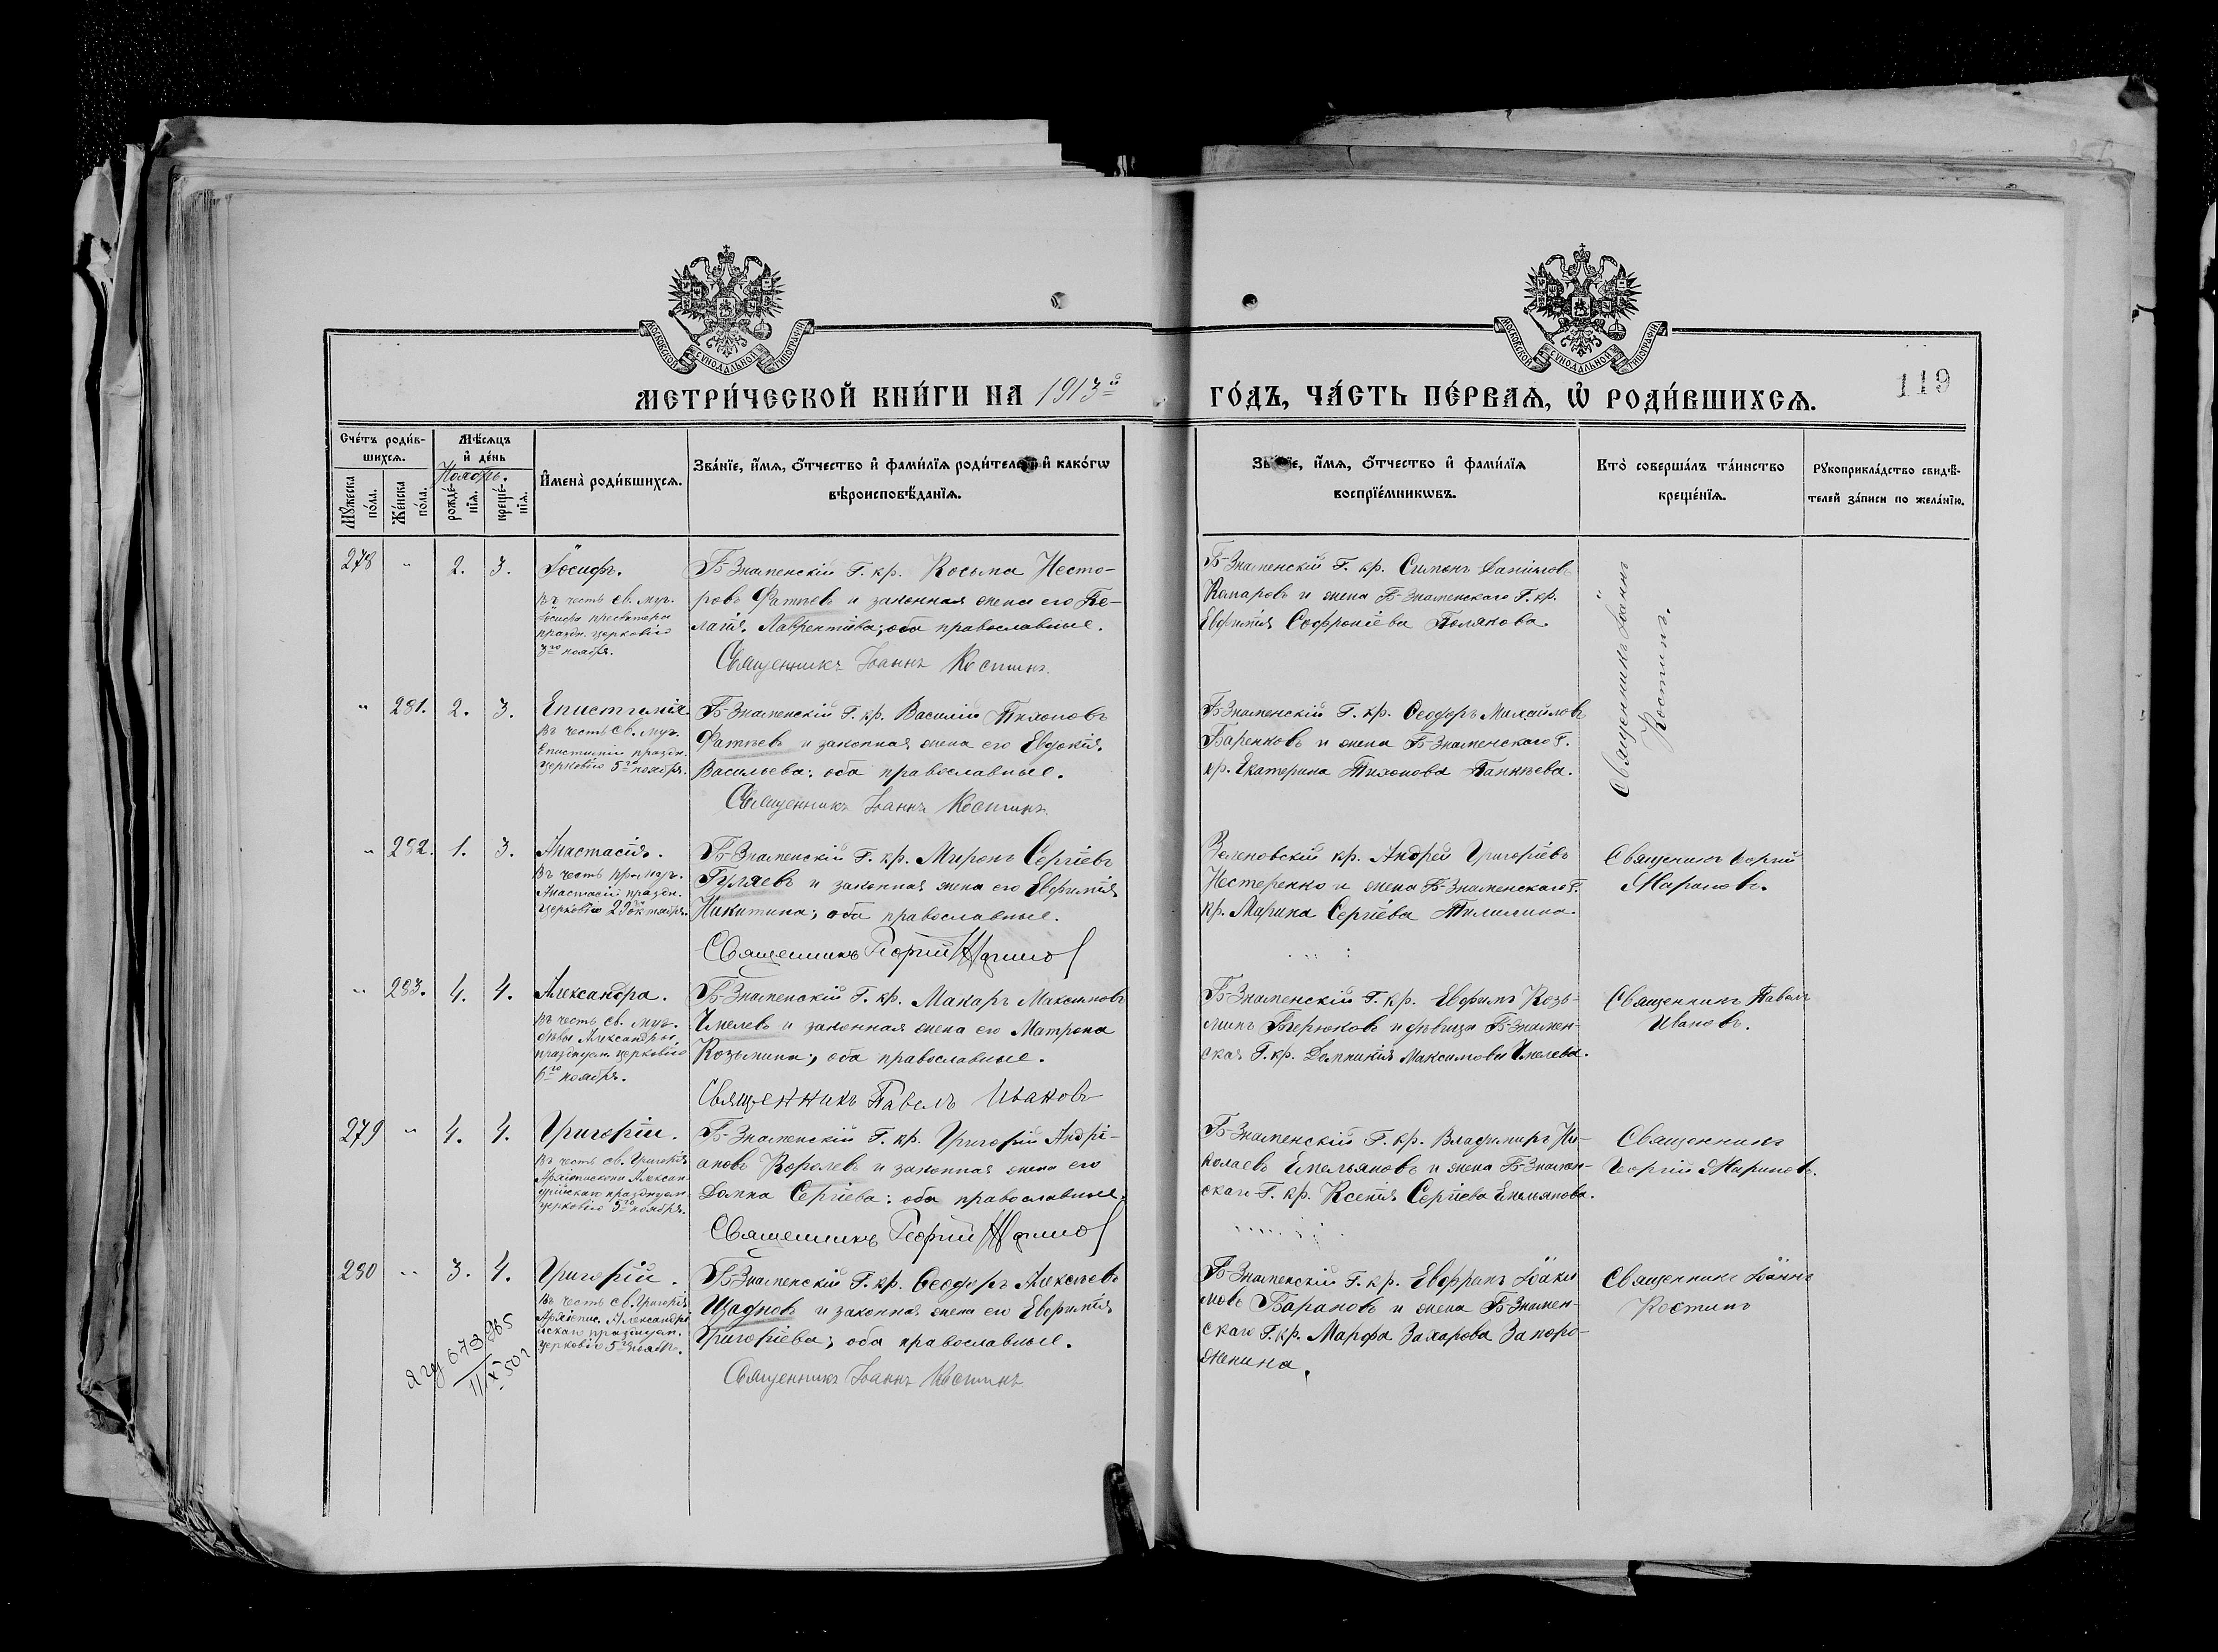 МОСКОВСКОЙ СѴНОДАЛЬНОЙ ТИПОГРАФІИ
МОСКОВСКОЙ СѴНОДАЛЬНОЙ ТИПОГРАФІИ
МЕТРИ́ЧЕСКОЙ КНИ́ГИ НА 1913й
ГО́ДЪ, ЧА́СТЬ ПЕ́РВАЯ, Ѡ РОДИ́ВШИХСЯ.
119
Сче́тъ роди́в-
шихся.
Мѣ́сяцъ
и҆ де́нь
Ноябрь.
Мꙋ́жеска
по́ла.
Же́нска
по́ла.
рожде́-
нїя.
креще́-
нїя.
И҆мена̀ роди́вшихся.
Зва́нїе, и҆́мя, ѻ҆́тчество и҆ фамѝлїя роди́телей и҆ како́гѡ
вѣроисповѣ́данїя.
Зва́нїе, и҆́мя, ѻ҆́тчество и҆ фами́лїя
воспрїе́мникѡвъ.
Кто̀ соверша́лъ та́инство
креще́нїя.
Рꙋкоприкла́дство свидѣ́-
телей за́писи по жела́нїю.
278 " 2. 3. Іосифъ.
Въ честь св. муч.
Іосифа пресвитера
праздн. церковію
3го ноября.
Б-Знаменскій Г. кр. Косьма Несто-
ровъ Фатѣевъ и законная жена его Пе-
лагія Лаврентіева; оба православные.
Священникъ Іоаннъ Костинъ.
Б-Знаменскій Г. кр. Симонъ Даниловъ
Комаровъ и жена Б-Знаменскаго Г. кр.
Евфимія Софроніева Полякова.
Священникъ Іоаннъ
Костинъ.
" 281. 2. 3. Епистимія.
Въ честь св. муч.
Епистиміи праздн.
церковію 5го ноября.
Б-Знаменскій Г. кр. Василій Тихоновъ
Фатѣевъ и законная жена его Евдокія
Васильева; оба православные.
Священникъ Іоаннъ Костинъ.
Б-Знаменскій Г. кр. Ѳеодоръ Михайловъ
Баренковъ и жена Б-Знаменскаго Г.
кр. Екатерина Тихонова
" 282. 1. 3. Анастасія.
Въ честь пр. муч.
Анастасіи праздн.
церковію 29 октября.
Б-Знаменскій Г. кр. Миронъ Сергіевъ
Гуляевъ и законная жена его Евфимія
Никитина; оба православные.
Священникъ Георгій Мариновъ
Зеленовскій кр. Андрей Григоріевъ
Нестеренко и жена Б-Знаменскаго Г.
кр. Марина Сергіева
Священникъ Георгій
Мариновъ.
" 283. 4. 4. Александра.
Въ честь св. муч.
дѣвы Александры,
празднуем. церковію
6го ноября.
Б-Знаменскій Г. кр. Макаръ Максимовъ
Чмелевъ и законная жена его Матрона
Козьмина; оба православные.
Священникъ Павелъ Ивановъ
Б-Знаменскій Г. кр. Евфимъ Козь-
минъ Бирюковъ и дѣвица Б-Знамен-
ская Г. кр. Домникія Максимова Чмелева.
Священникъ Павелъ
Ивановъ.
279 " 4. 4. Григорій.
Въ честь св. Григорія
Архіепископа Алексан-
дрійскаго празднуем.
церковію 5го ноября.
Б-Знаменскій Г. кр. Григорій Андрі-
ановъ Королевъ и законная жена его
Домна Сергіева; оба православные.
Священникъ Георгій Мариновъ
Б-Знаменскій Г. кр. Владимиръ Ни-
колаевъ Емельяновъ и жена Б-Знамен-
скаго Г. кр. Ксенія Сергіева Емельянова.
Священникъ
Георгій Мариновъ.
280 " 3. 4. Григорій.
Въ честь св. Григорія
Архіепис. Александрі
йскаго празднуем.
церковію 5го ноября.
Б-Знаменскій Г. кр. Ѳеодоръ Алексѣевъ
Щадновъ и законная жена его Евфимія
Григоріева; оба православные.
Священникъ Іоаннъ Костинъ
Б-Знаменскій Г. кр. Евфрамъ Іоаки
мовъ Барановъ и жена Б-Знамен-
скаго Г. кр. Марфа Захарова Запоро-
жнина.
Священникъ Іоаннъ
Костинъ
673865
11/X-50г